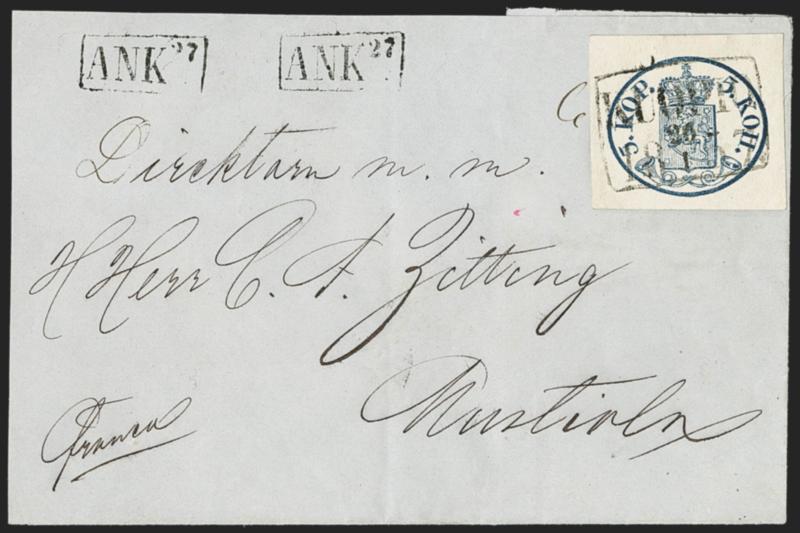 ANK 27 ANK 27
5. KOP. 5. КОП.
26
1
Direktorn m. m.
HHerr C. F. Zitting
Mustiala
franco